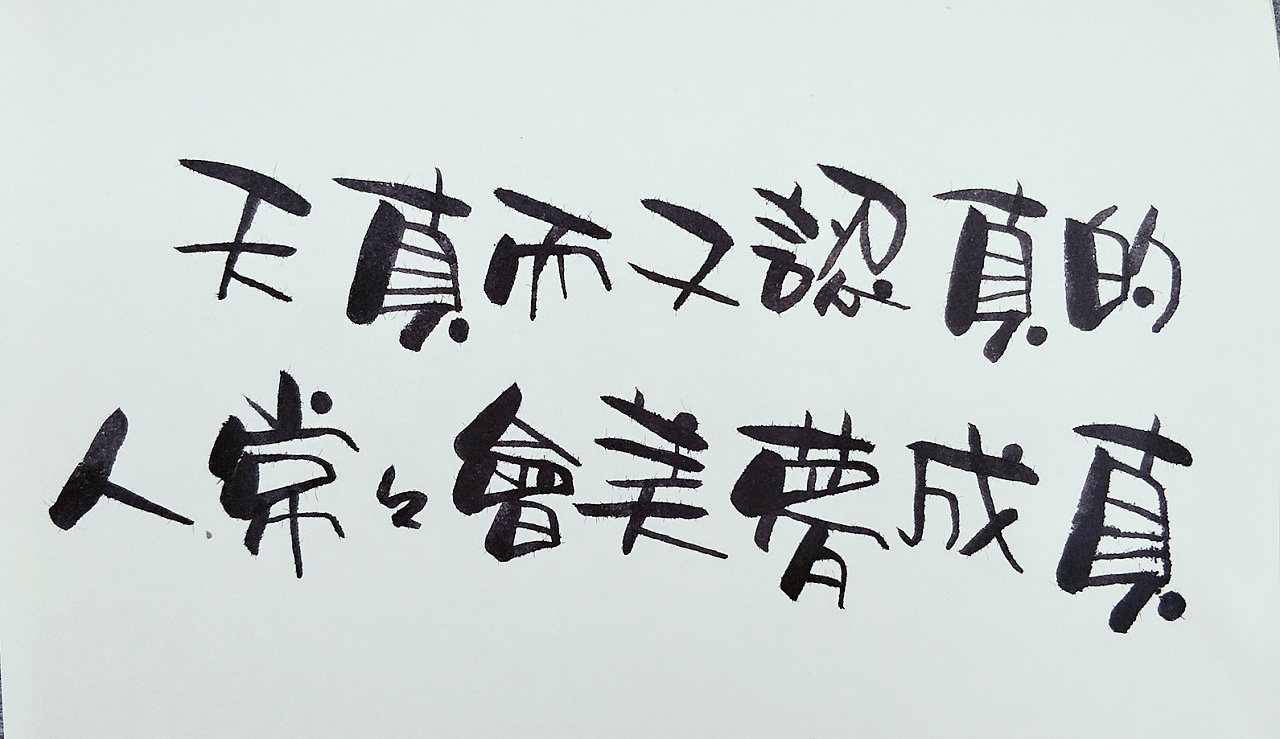 天真而又認真的
人常々會美夢成真